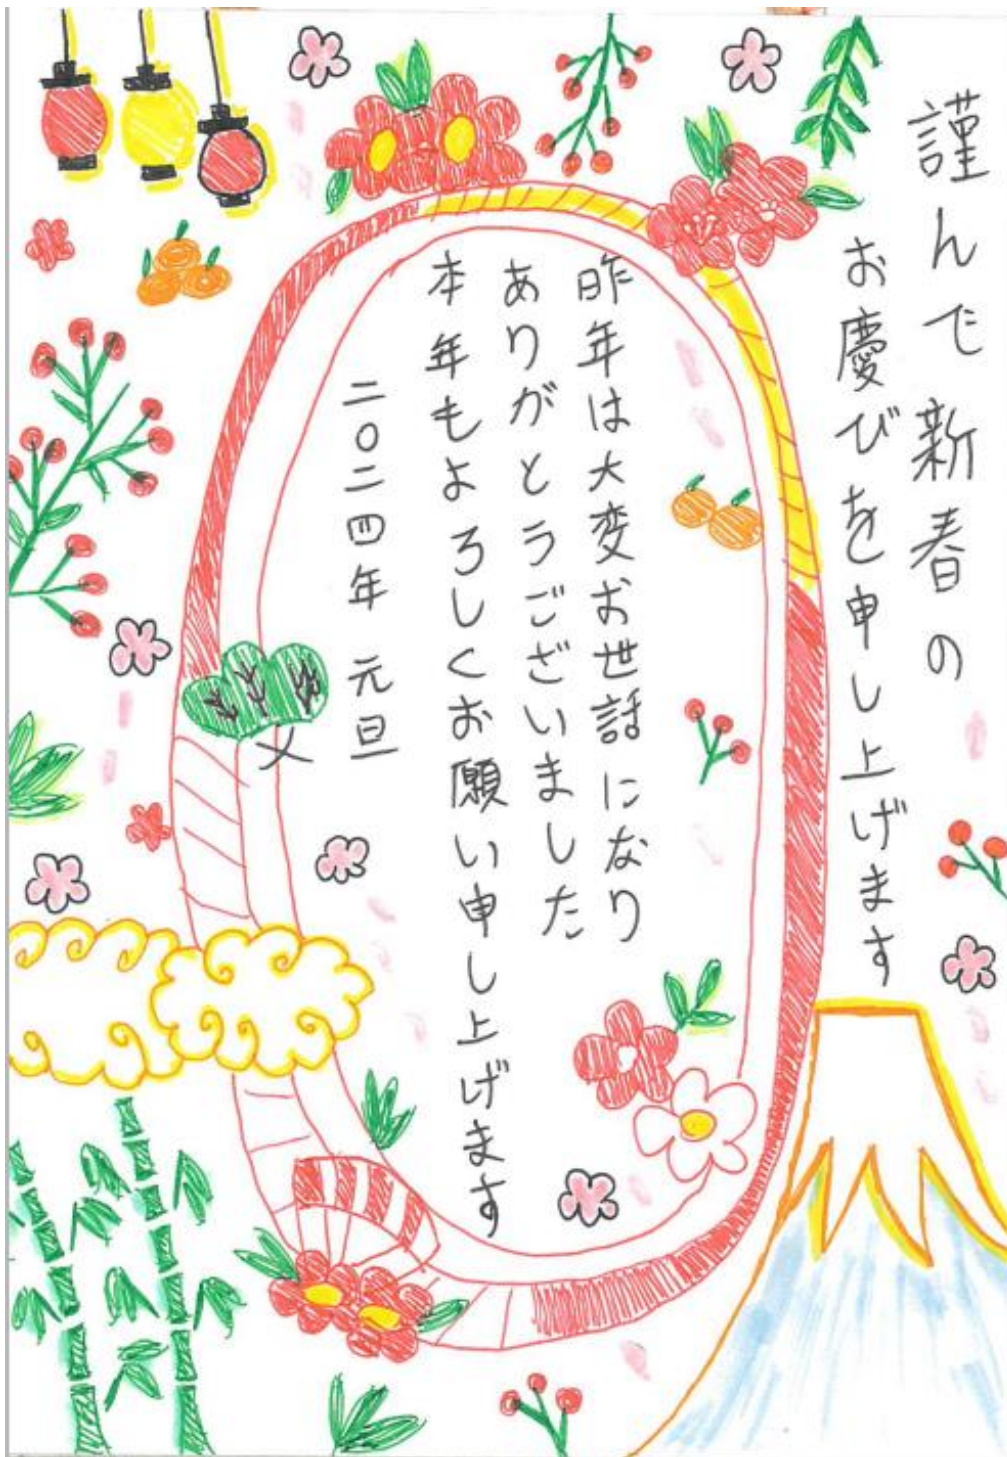 謹んで新春の
お慶びを申し上げます
昨年は大変お世話になり
ありがとうございました
本年もよろしくお願い申し上げます
二〇二四年 元旦